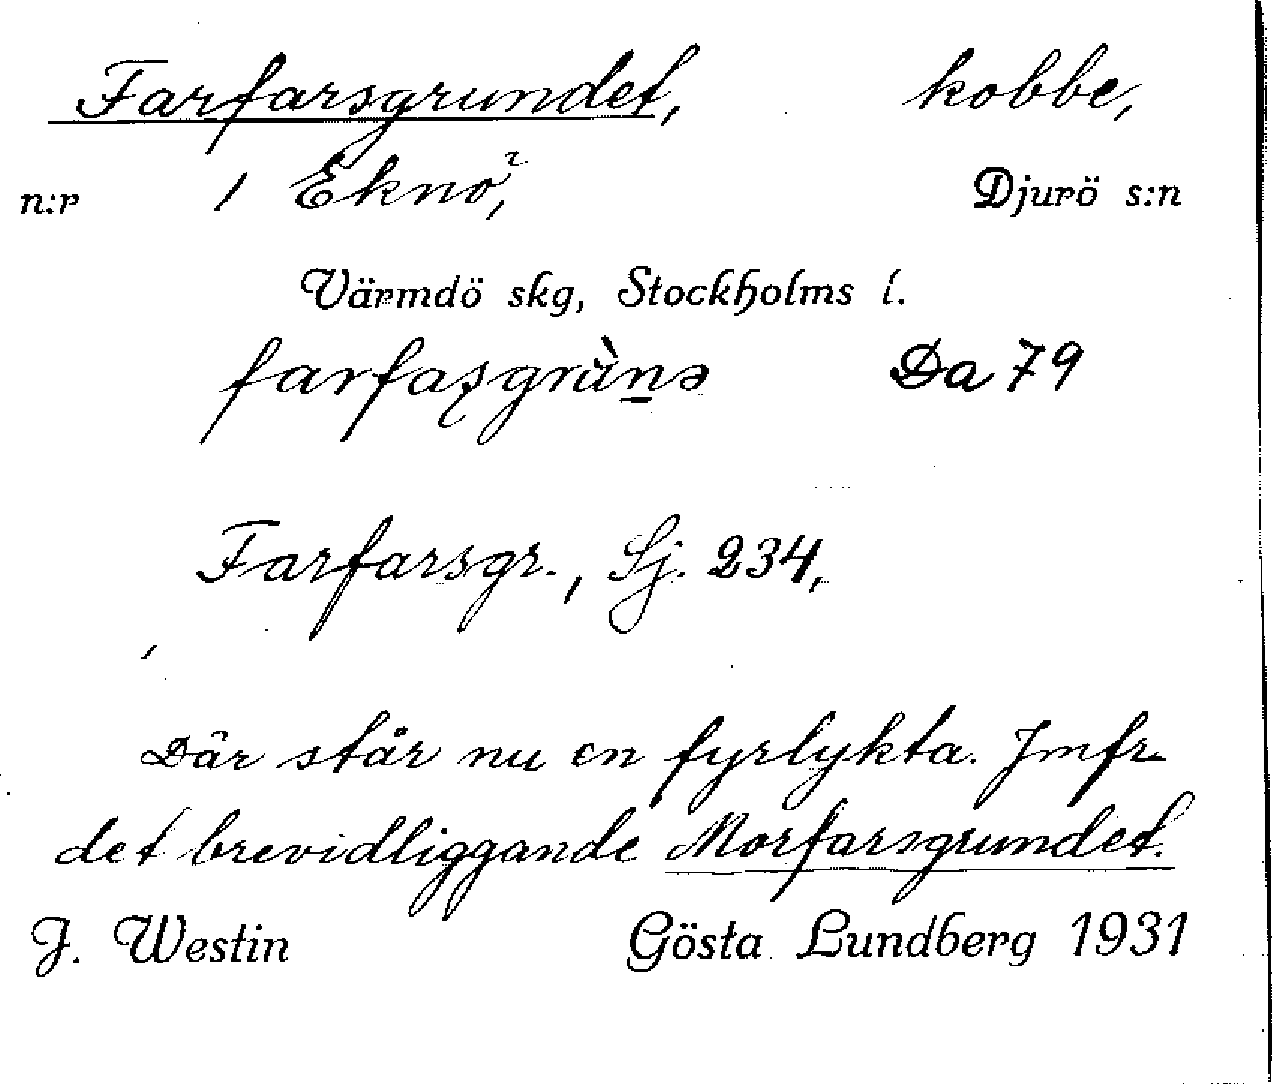 Farfarsgrundet, kobbe,
n:r 1 Eknö, Djurö s:n
Värmdö skg, Stockholms l.
farfaʂgrùn̲ə Da 79
Farfarsgr., Sj. 234,
Där står nu en fyrlykta. Jmfr
det brevidliggande Morfarsgrundet.
J. Westin Gösta Lundberg 1931